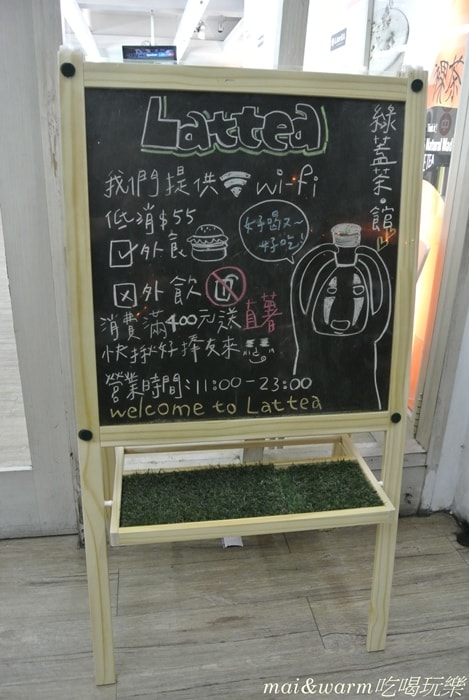 Lattea
綠蓋茶·館
我們提供 wi-fi
低消$55
外食
好喝又~
好吃!
外飲
消費滿400元送直薯
快揪好捧友來
營業時間:11:00-23:00
welcome to Lattea
mai&warm吃喝玩樂